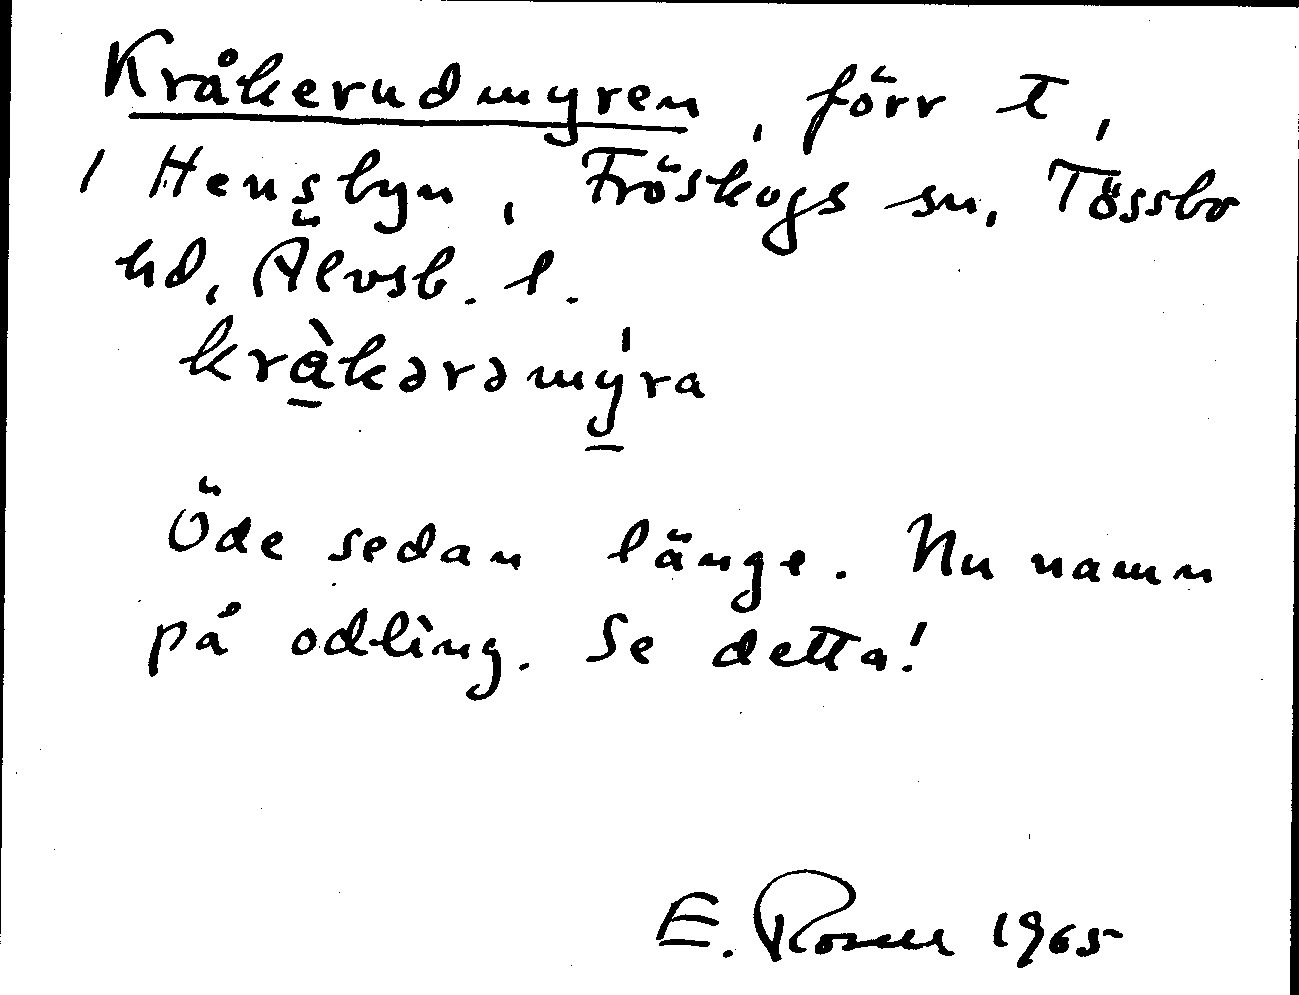 Kråkerudmyren, förr t,
/ Hensbyn, Fröskogs sn, Tössbo
hd, Älvsb. l.
kràkərəmýra
Öde sedan länge. Nu namn
på odling. Se detta!
E. Rosell 1965